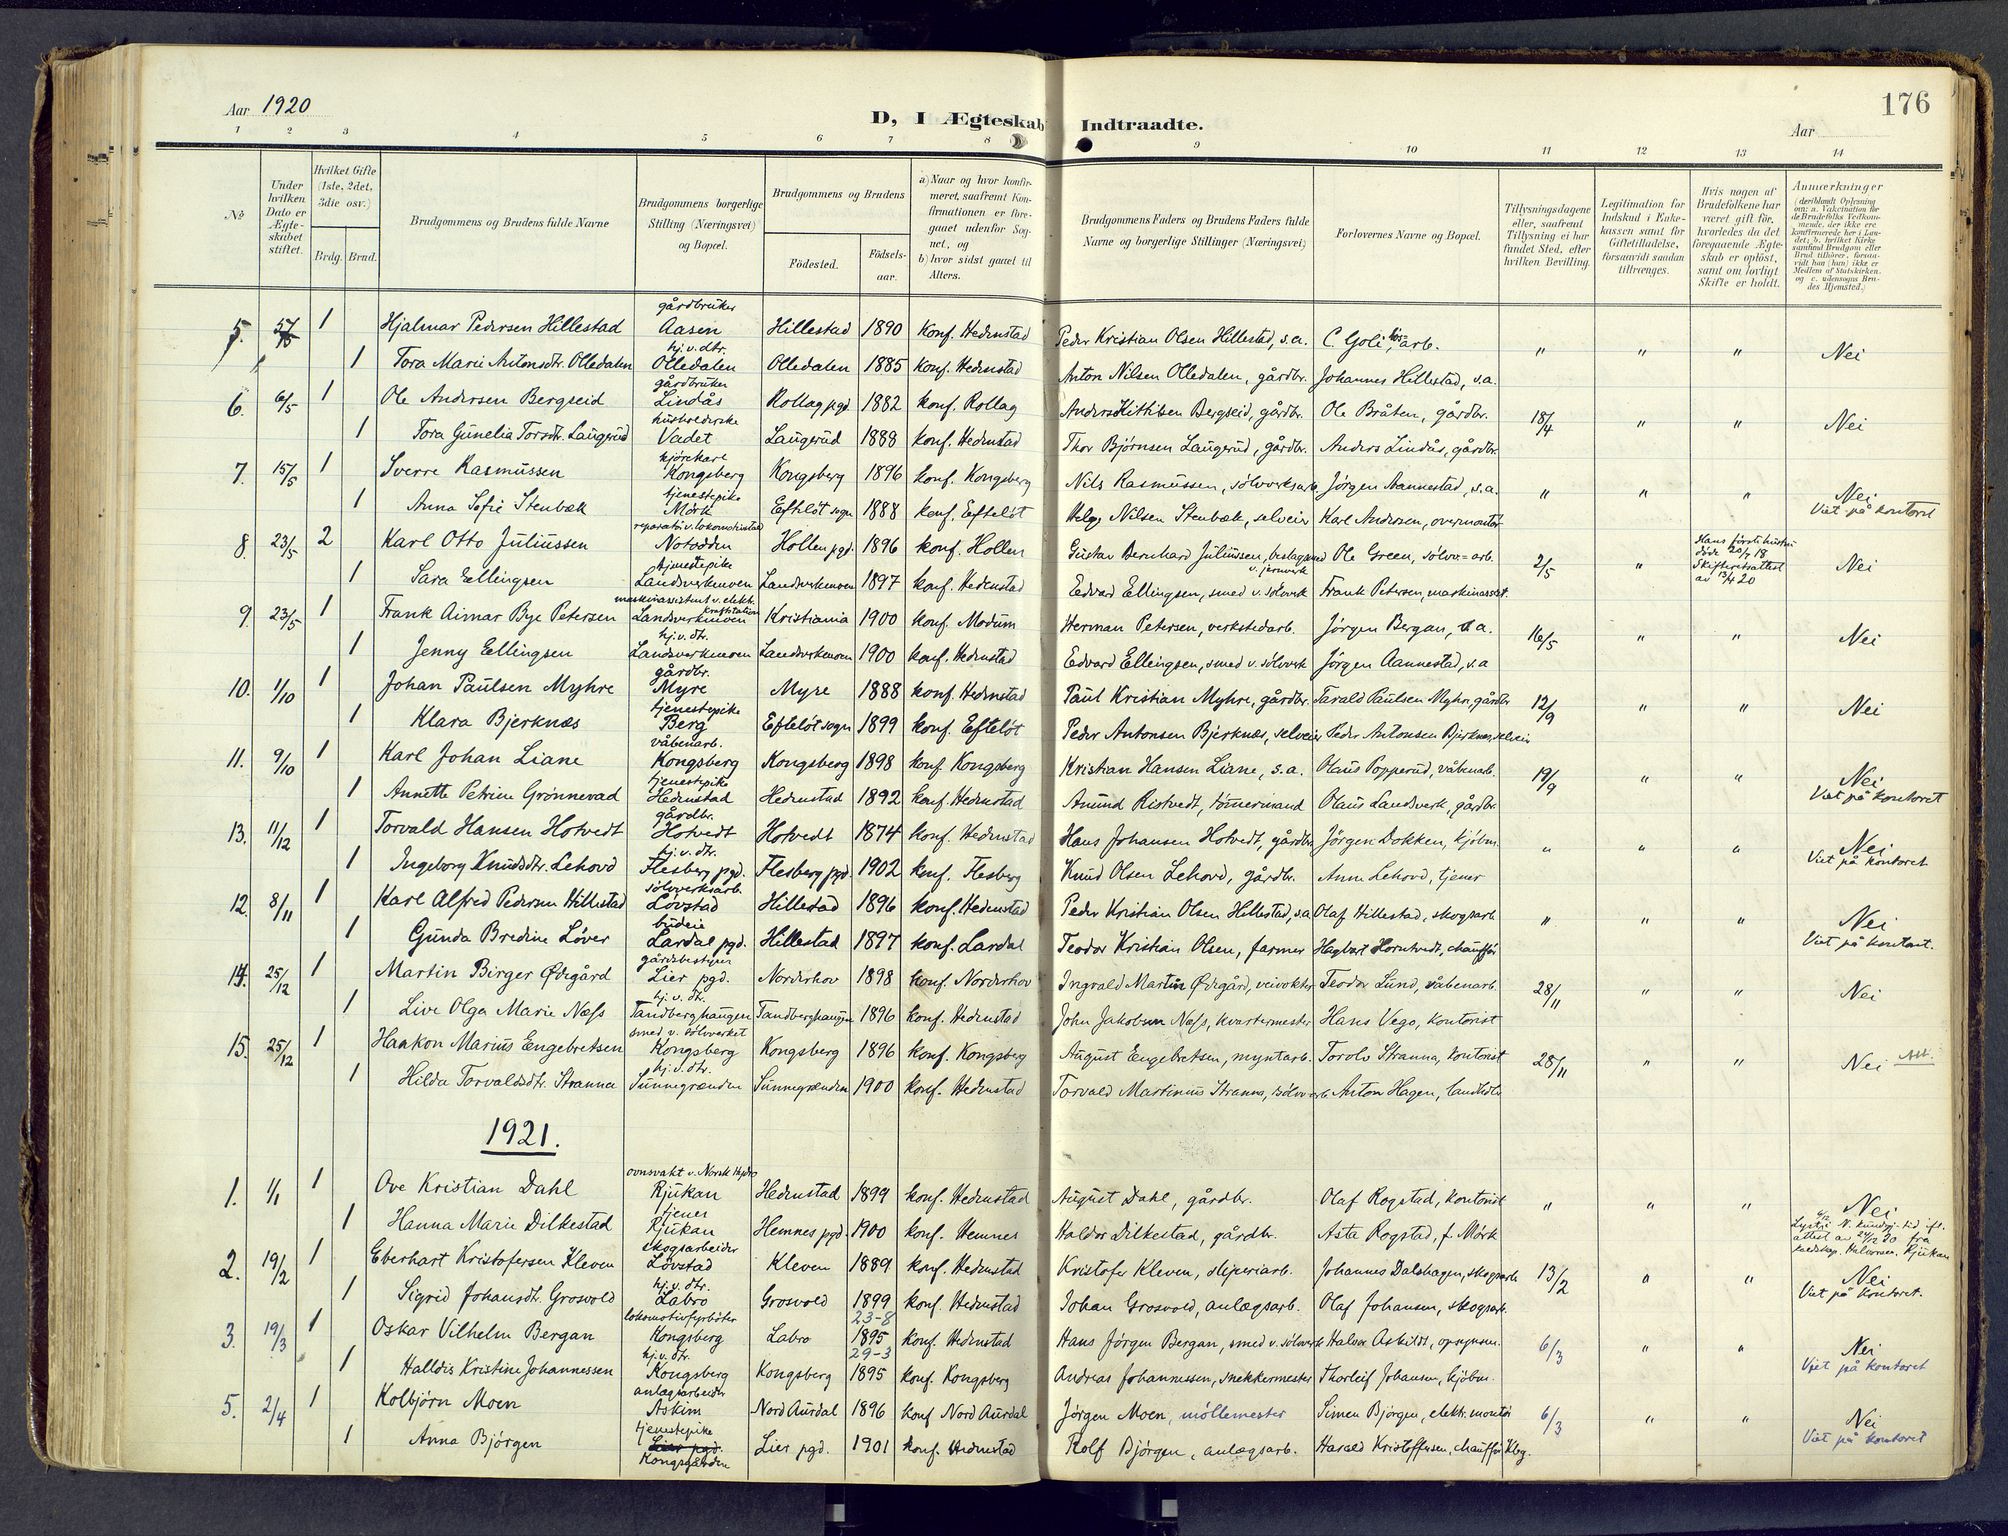 176
Aar 1920
D, I Ægteskab Indtraadte.
Aar
1 2 3 4 5 6 7 8 9 10 11 12 13 14
№
Under hvilken Dato er Ægteskabet stiftet.
Hvilket Gifte (1ste, 2det, 3die osv.)
Brdg. Brud.
Brudgommens og Brudens fulde Navne
Brudgommens borgerlige Stilling (Næringsvei) og Bopæl.
Brudgommens og Brudens
Fødested. Fødselsaar.
a) Naar og hvor konfirmeret, saafremt Konfirmationen er foregaaet udenfor Sognet, og
b) hvor sidst gaaet til Alters.
Brudgommens Faders og Brudens Faders fulde Navne og borgerlige Stillinger (Næringsvei)
Forlovernes Navne og Bopæl.
Tillysningsdagene eller, saafremt Tillysning ei har fundet Sted, efter hvilken Bevilling.
Legitimation for Indskud i Enkekassen samt for Giftetilladelse, forsaavidt saadan tiltrænges.
Hvis nogen af Brudefolkene har været gift før, hvorledes da det foregaaende Ægteskab er opløst, samt om lovligt Skifte er holdt.
Anmærkninger (deriblandt Oplysning om: a. Vakcination for de Brudefolks Vedkommende, der ikke ere konfirmerede her i Landet; b. hvilket Kirkesamfund Brudgom eller Brud tilhører, forsaavidt han (hun) ikke er Medlem af Statskirken. og c. udensogns Brudes Hjemsted.)
5. 1 Hjalmar Pedersen Hillestad gårdbruker Aasen Hillestad 1890 Konf. Hedenstad Peder Kristian Olsen Hillestad, s.a. C. Goli, arb. " " " Nei
1 Tora Marie Antonsdtr. Olledalen hj.v.dtr. Olledalen Olledalen 1885 konf. Hedenstad Anton Nilsen Olledalen, gårdbr. Johannes Hillestad, s.a.
6. 6/5 1 Ole Andersen Bergseid gårdbruker Lindås Rollag pgd. 1882 konf. Rollag Anders Kittilsen Bergseid, gårdbr. Ole Bråten, gårdbr. 18/4 " " Nei
1 Tora Gunelia Torsdtr. Laugerud husholderske Vadet Laugerud 1888 konf. Hedenstad Thor Bjørnsen Laugerud, gårdbr. Anders Lindås, gårdbr.
7. 15/5 1 Sverre Rasmussen kjørekarl Kongsberg Kongsberg 1896 konf. Kongsberg Nils Rasmussen, sølvverksarb. Jörgen Aannestad, s.a. " " " Nei. Viet på kontoret
1 Anna Sofie Stenbæk tjenestepike Mørk Efteløt sogn 1888 konf. Efteløt Helge Nilsen Stenbæk, selveier Karl Andersen, overmontør
8. 23/5 2 Karl Otto Juliussen reparatør v. lokomotivstad Notodden Hollen pgd. 1896 konf. Hollen Gustav Bernhard Juliussen, beslagsmed v. jernverk Ole Green, sølvv.=arb. 2/5 " Hans første hustru døde 20/7 18 Skifterettsattest av 13/4 20 Nei
1 Sara Ellingsen tjenestepike Landsverkmoen Landsverkmoen 1897 konf. Hedenstad Edvard Ellingsen, smed v. sölverk Frank Petersen, maskinassist.
9. 23/5 1 Frank Aimar Bye Petersen maskinassistent v. elektr. kraftstation Landsverkmoen Kristiania 1900 konf. Modum Herman Petersen, verkstedarb. Jörgen Bergan, s.a. 16/5 " " Nei
1 Jenny Ellingsen hj.v.dtr. Landsverkmoen Landsverkmoen 1900 konf. Hedenstad Edvard Ellingsen, smed v. sølvverk Jörgen Aannestad, s.a
10. 1/10 1 Johan Paulsen Myhre gårdbr. Myre Myre 1888 konf. Hedenstad Paul Kristian Myhre, gårdbr. Tarald Paulsen Myhre, gårdbr 12/9 " " Nei
1 Klara Bjerknæs tjenestepike Berg Efteløt sogn 1899 konf. Efteløt Peder Antonsen Bjerknæs, selveier Peder Antonsen Bjerknæs, selveier
11. 9/10 1 Karl Johan Liane våbenarb. Kongsberg Kongsberg 1898 konf. Kongsberg Kristian Hansen Liane, s.a. Olaus Popperud, våbenarb. 19/9 " " Nei Viet på kontoret
1 Annette Petrine Grønnevad tjenestepike Hedenstad Hedenstad 1892 konf. Hedenstad Anund Ristvedt, tømermand Olaus Landsverk, gårdbr.
13. 11/12 1 Torvald Hansen Hotvedt gårdbr. Hotvedt Hotvedt 1874 konf. Hedenstad Hans Johansen Hotvedt, gårdbr Jörgen Dokken, kjøbm. " " " Nei Viet på kontoret
1 Ingeborg Knudsdtr. Lehovd hj.v.dtr. Flesberg pgd. Flesberg pgd. 1902 konf. Flesberg Knud Olsen Lehovd, gårdbr. Anne Lehovd, tjener
12. 8/11 1 Karl Alfred Pedersen Hillestad sølvverksarb. Lövstad Hillestad 1896 konf. Hedenstad Peder Kristian Olsen Hillestad, s.a Olaf Hillestad, skogsarb " " " Nei Viet på kontoret.
1 Gunda Bredine Løver budeie Lardal pgd. Hillestad 1897 konf. Lardal Teodor Kristian Olsen, farmer Hagbart Horntvedt, chauffør
14. 25/12 1 Martin Birger Ødegård gårdsbestyrer Lier pgd. Norderhov 1898 konf. Norderhov Ingvald Martin Ødegård, veivokter Teodor Lund, våbenarb. 28/11 " " Nei
1 Live Olga Marie Næss hj.v.dtr. Tandberghaugen Tandberghaugen 1896 konf. Hedenstad John Jakobsen Næss, kvartermester Hans Vego, kontorist
15. 25/12 1 Haakon Marius Engebretsen smed v. sølvverket Kongsberg Kongsberg 1896 konf. Kongsberg August Engebretsen, myntarb. Torolv Stranna, kontorist 28/11 " " Nei Att.
1 Hilda Torvaldsdtr. Stranna hj.v.dtr. Sunnegrænden Sunnegrænden 1900 konf. Hedenstad Torvald Martinius Stranna, sølvv.arb Anton Hagen, landhdlr
1921.
1. 1/1 1 Ove Kristian Dahl ovnsvakt v. Norsk Hydro Rjukan Hedenstad 1899 konf. Hedenstad August Dahl, gårdbr. Olaf Rogstad, kontorist " " " Nei
1 Hanna Marie Dilkestad tjener Rjukan Hemnes pgd. 1900 konf. Hemnes Haldor Dilkestad, gårdbr. Asta Rogstad, f. Mörk Lyst i N. kundgj.tid ifl. attest av 24/12 20 fra Halvorsen, Rjukan
2. 19/2 1 Eberhart Kristofersen Kleven skogsarbeider Løvstad Kleven 1889 konf. Hedenstad Kristofer Kleven, sliperiarb. Johannes Dalshagen, skogsarb 13/2 " " Nei Viet på kontoret.
1 Sigrid Johansdtr. Grosvold hj.v.dtr. Labro Grosvold 1899 konf. Hedenstad Johan Grosvold, anlægsarb. Olaf Johansen, skogsarb.
3. 19/3 1 Oskar Vilhelm Bergan lokomotivfyrbøter Kongsberg Labro 23-8 1895 konf. Hedenstad Hans Jørgen Bergan, smed v. sølvverk Halvor Askildt, opsynsm. 6/3 " " Nei Viet på kontoret
1 Halldis Kristine Johannessen hj.v.dtr. Kongsberg Kongsberg 29-3 1895 konf. Kongsberg Andreas Johannessen, snekkermester Thorleif Johansen, kjøbm.
5. 2/4 1 Kolbjörn Moen anlægsarbeider Askim Nord Aurdal 1896 konf Nord Aurdal Jørgen Moen, møllemester Simen Bjørgen, elektr. montør 6/3 " " Nei Viet på kontoret
1 Anna Bjørgen tjenestepike Lier pgd. Kongsgården Lier pgd. 1901 konf. Hedenstad Rolf Bjørgen, anlægsarb. Harald Kristoffersen, chauffør Kbg.